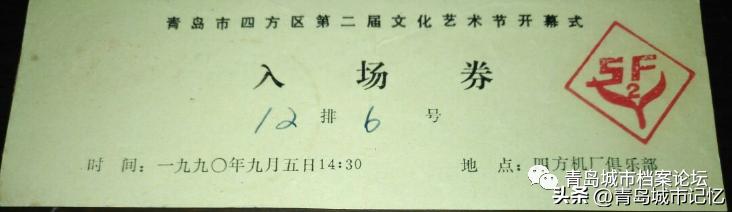 青岛市四方区第二届文化艺术节开幕式
入场券
SF
2
12排6号
时 间：一九九〇年九月五日14:30 地 点：四方机厂俱乐部
青岛城市档案论坛
头条 @青岛城市记忆